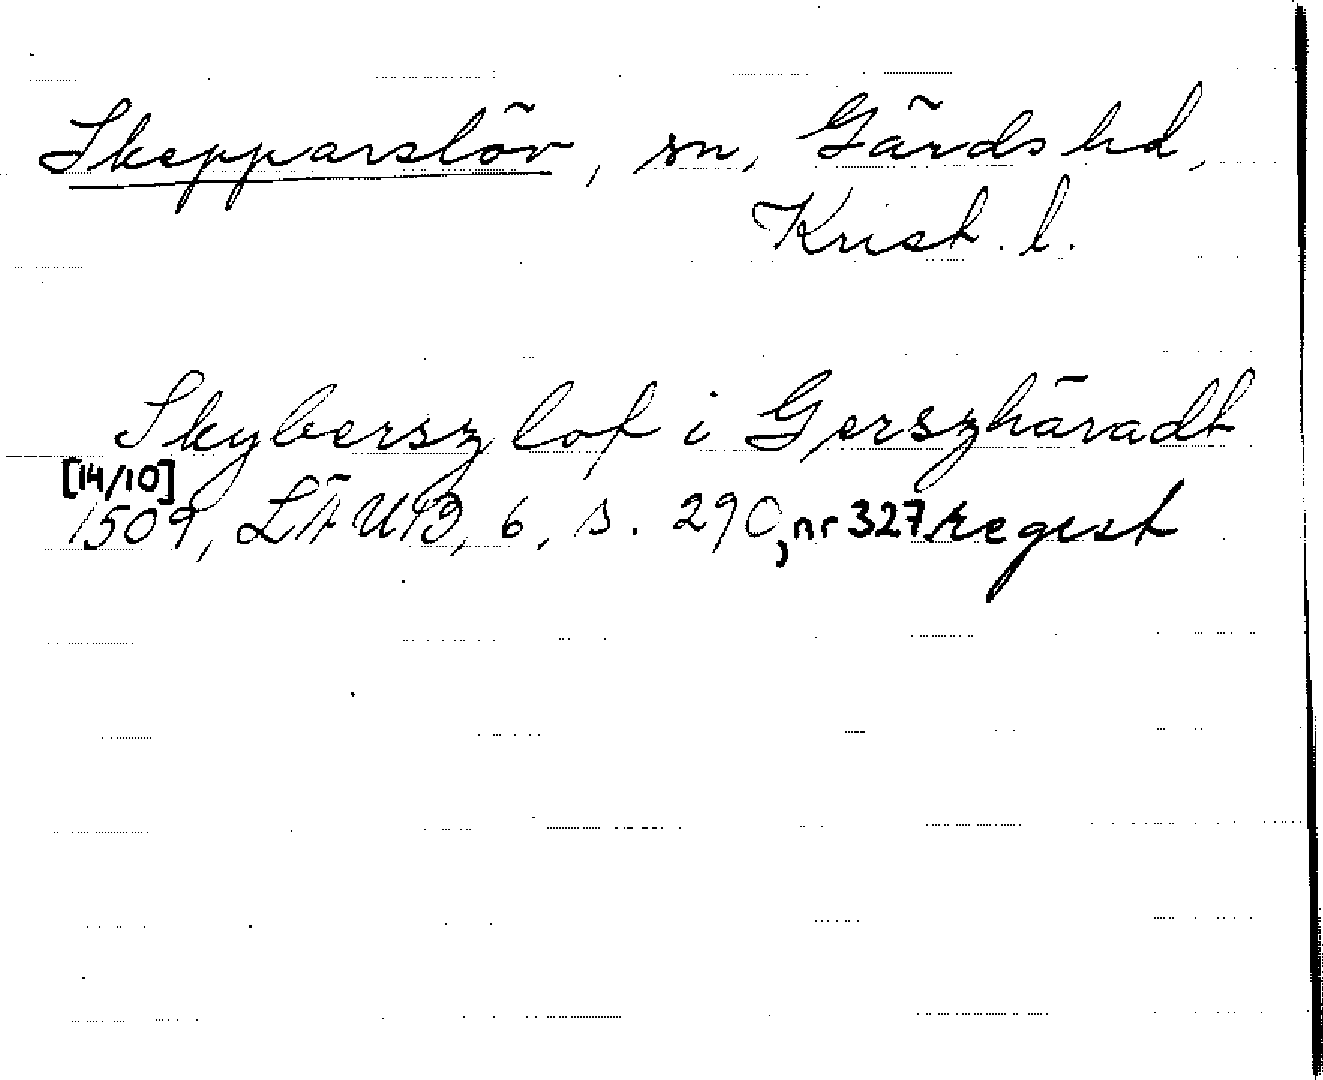 Skepparslöv, sn, Gärds hd,
Krist. l.
Skybersz lof i Gerszhäradt
[14/10]
1509, LÄUB, 6, s. 290, nr 327 regest